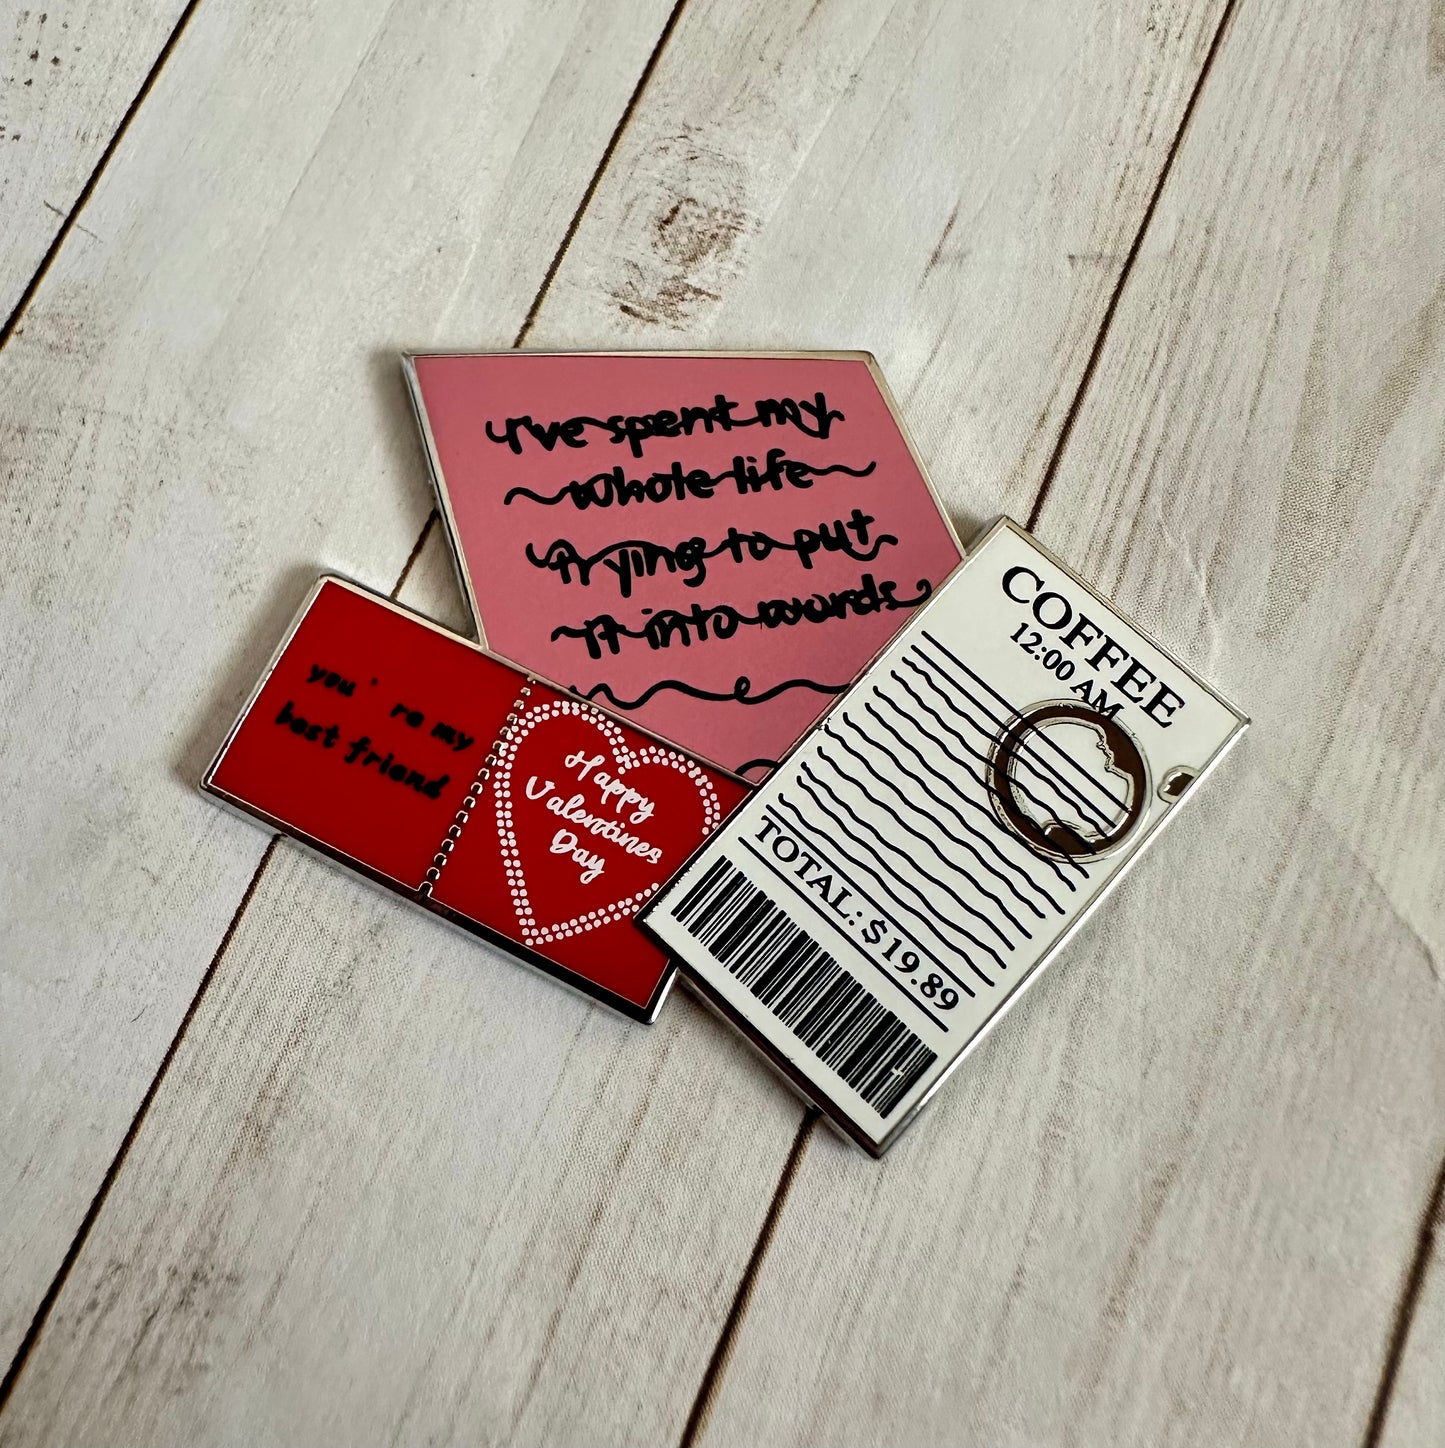 I've spent my
whole life
trying to put
it into words
you're my
best friend
Happy
Valentines
Day
COFFEE
12:00 AM
TOTAL: $19.89